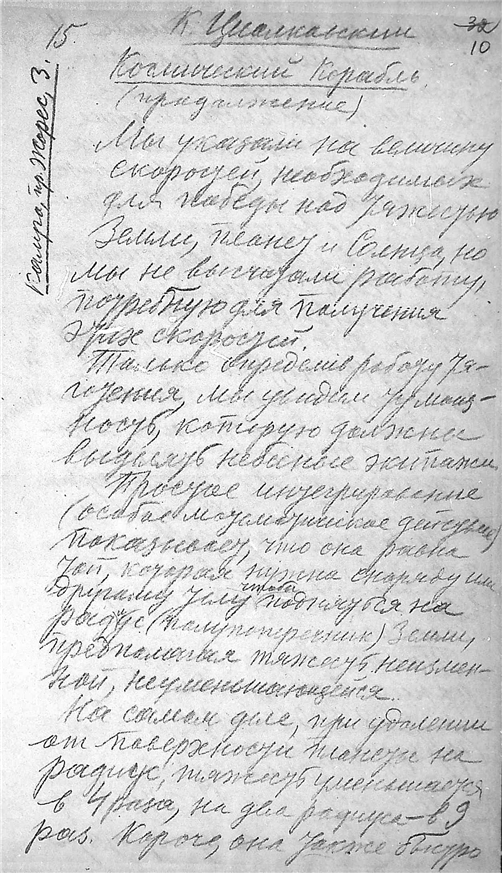 К. Циолковский
15.
32
10
Космический Корабль
(продолжение)
Калуга, пр. Жорес, 3.
Мы указали на величину
скоростей, необходимых
для победы над тяжестью
Земли, планет и Солнца, но
мы не высчитали работу,
потребную для получения
этих скоростей.
Только определив работу тя-
готения, мы увидим ту мощ-
ность, которую должны
выделять небесные экипажи.
Простое интегрирование
(особое математическое действие)
показывает, что она равна
той, которая нужна снаряду или
другому телу чтобы подняться на
радиус (полупоперечник) Земли,
предполагая тяжесть неизмен-
ной, неуменьшающейся.
На самом деле, при удалении
от поверхности планеты на
радиус, тяжесть уменьшается
в 4 раза, на два радиуса – в 9
раз. Короче, она также быстро